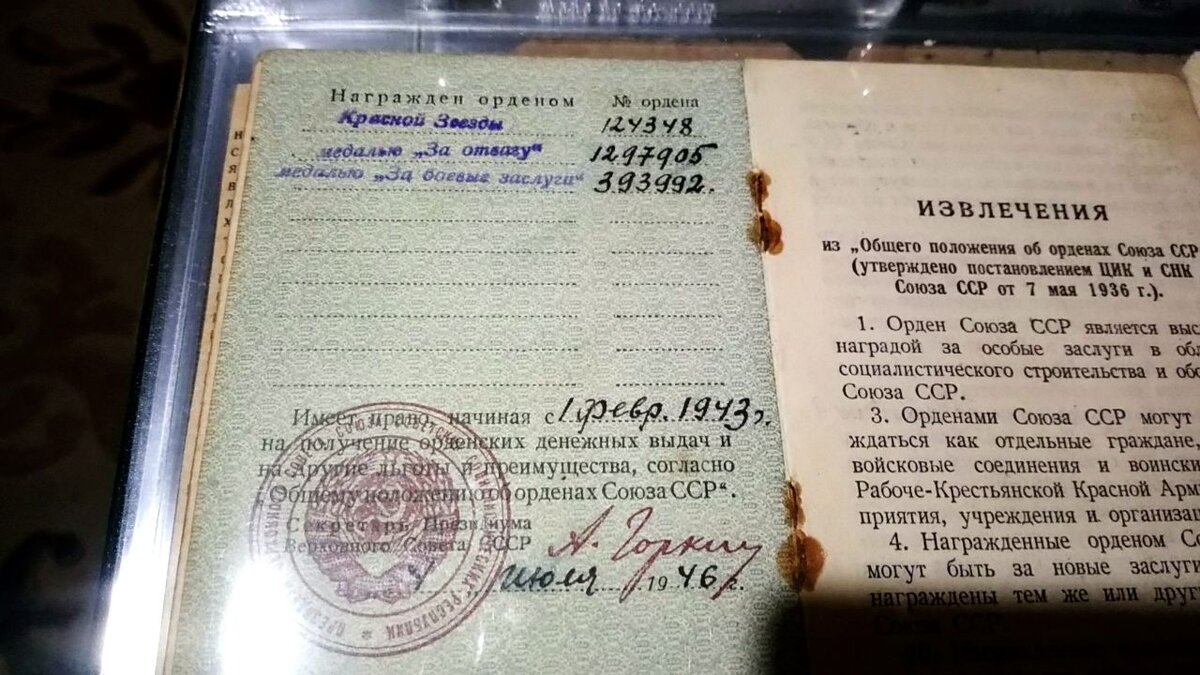 Награжден орденом № ордена
Красной Звезды 124348
медалью „За отвагу“ 1297905
медалью „За боевые заслуги“ 393992.
Имеет право, начиная с 1 февр. 1943 г.
на получение орденских денежных выдач и
на другие льготы и преимущества, согласно
„Общему положению об орденах Союза ССР“.
Секретарь Президиума
Верховного Совета СССР А. Горкин
июля 1946 г.
ИЗВЛЕЧЕНИЯ
из „Общего положения об орденах Союза ССР
(утверждено постановлением ЦИК и СНК
Союза ССР от 7 мая 1936 г.).
1. Орден Союза ССР является выс
наградой за особые заслуги в обл
социалистического строительства и обо
Союза ССР.
3. Орденами Союза ССР могут
ждаться как отдельные граждане,
войсковые соединения и воински
Рабоче-Крестьянской Красной Арм
приятия, учреждения и организа
4. Награжденные орденом Со
могут быть за новые заслуги
награждены тем же или друг
Союза ССР.